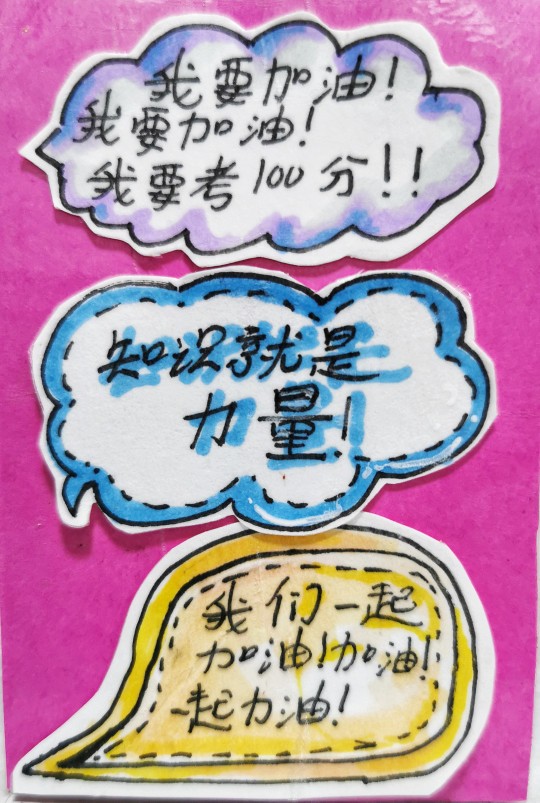 我要加油！
我要加油！
我要考100分！！
知识就是
力量！
我们一起
加油！加油！
一起力油！